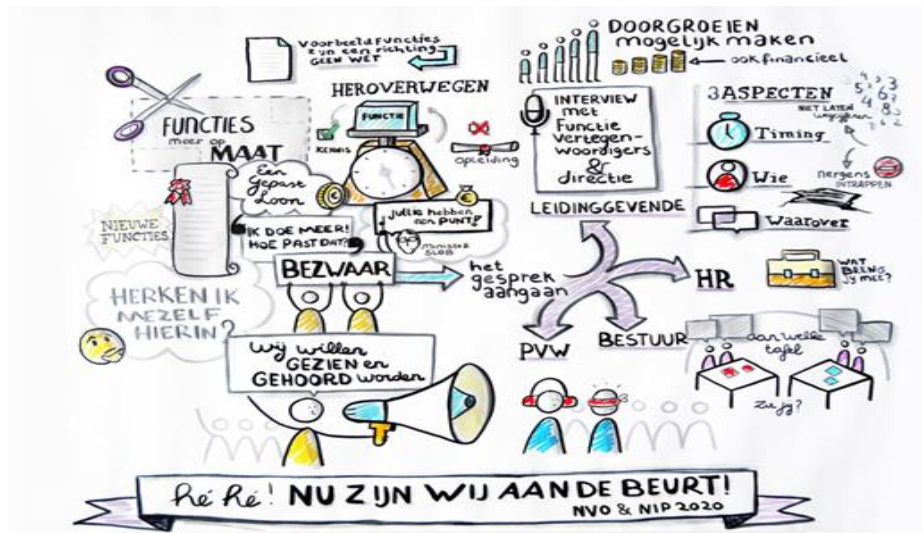 Voorbeeldfuncties
zijn een richting
GEEN WET
HEROVERWEGEN
FUNCTIES
meer op
MAAT
FUNCTIE
KENNIS
opleiding
Een
gepast
Loon
NIEUWE
FUNCTIES
IK DOE MEER!
HOE PAST DAT?
jullie hebben
een PUNT!
MINISTER
SLOB
BEZWAAR
het
gesprek
aangaan
HERKEN IK
MEZELF
HIERIN?
Wij willen
GEZIEN en
GEHOORD worden
DOORGROEIEN
mogelijk maken
ook financieel
INTERVIEW
met
Functie
vertegen-
woordigers
&
directie
3 ASPECTEN
NIET LATEN
Timing
Wie
nergens
INTRAPPEN
Waarover
LEIDINGGEVENDE
HR
WAT
BRENG
JY MEE?
BESTUUR
PVW
aan welke
tafel
Zit jy?
hé hé! NU ZIJN WIJ AAN DE BEURT!
NVO & NIP 2020